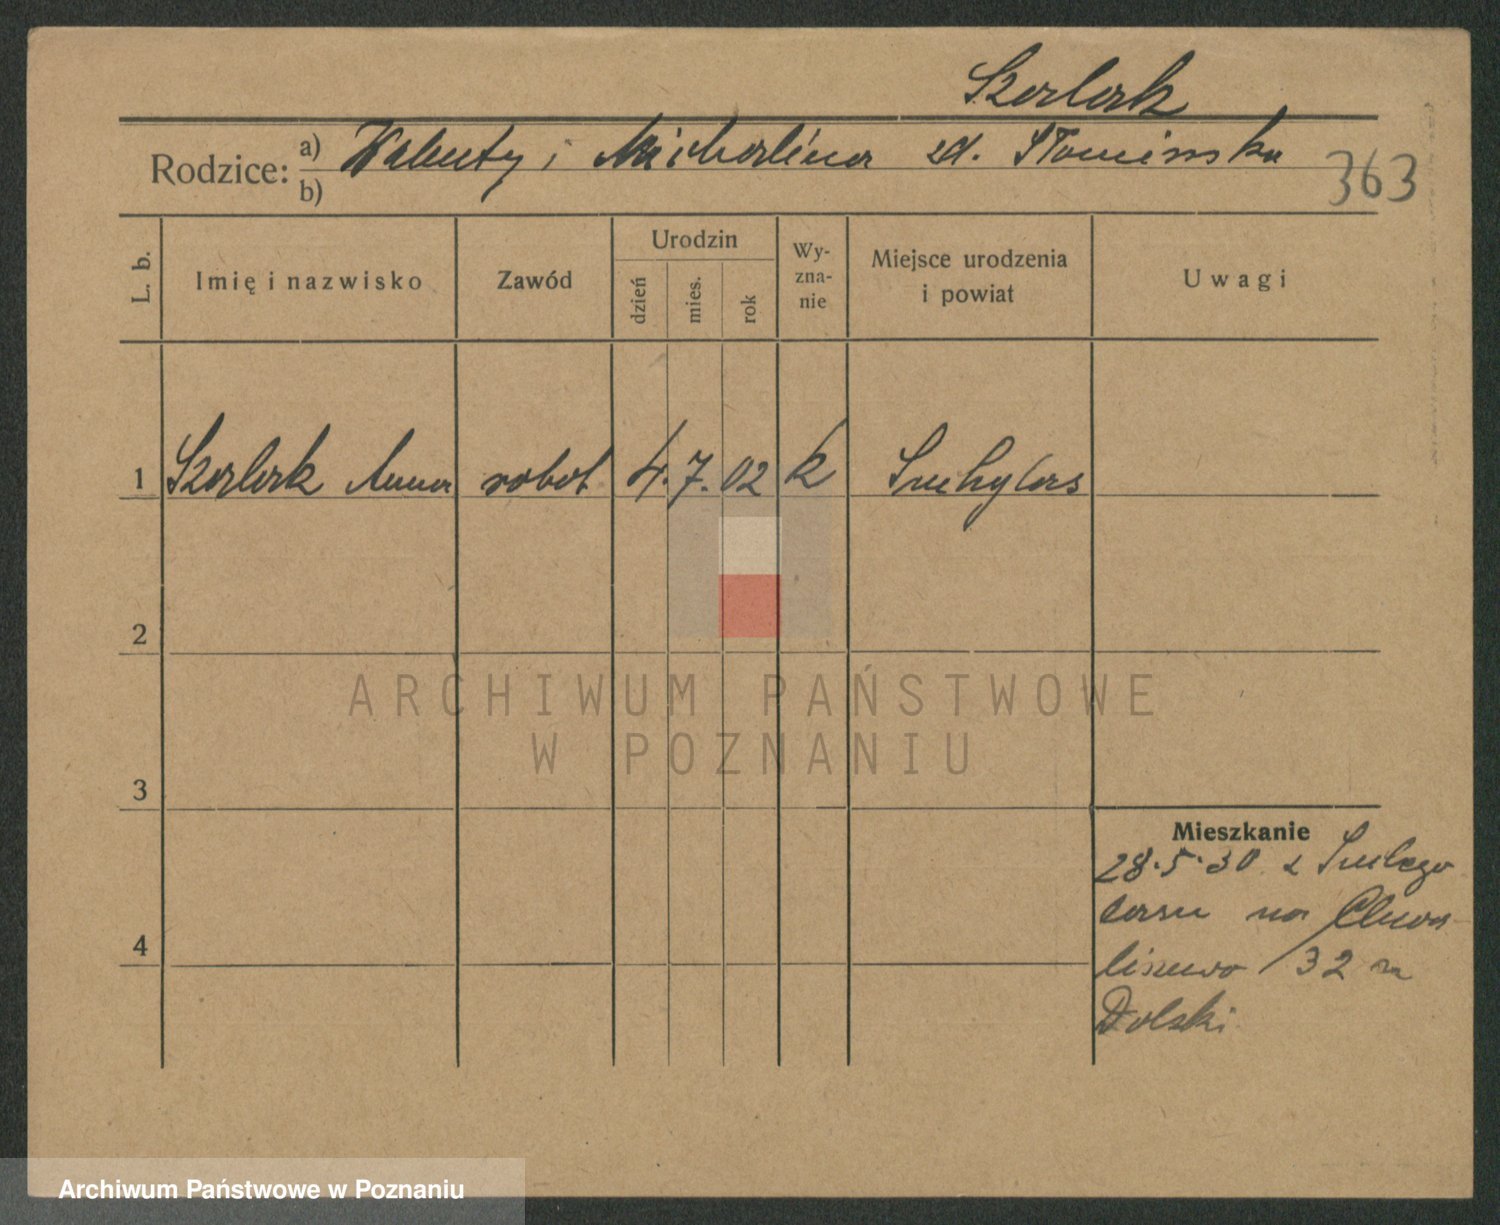 Szorlork
Rodzice: a) Walenty i Michalina zd. Słomińska
b)
363
L. b.
Imię i nazwisko
Zawód
Urodzin
dzień
mies.
rok
Wy-
zna-
nie
Miejsce urodzenia
i powiat
Uwagi
1 Szorlork Anna robot 4. 7. 02 k Suchylas
2
ARCHIWUM PAŃSTWOWE
W POZNANIU
3
Mieszkanie
28.5.30 z Suchego
lasu na Chwa
liszewo 32 m
Dolski
4
Archiwum Państwowe w Poznaniu